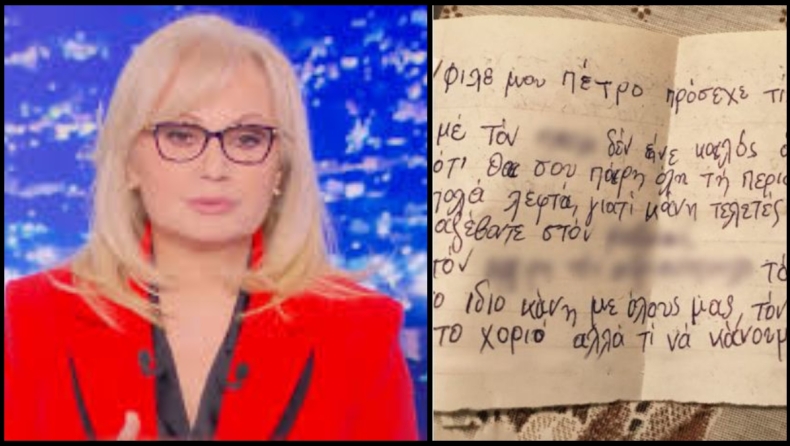 φιλέ μου πέτρο πρόσεχε τί
μέ τόν δέν είνε καλός
ότι θα σου πάρη όλη τή περι
πολά λεφτά, γιατί κάνη τελετές
στόν
τόν τό
ο ίδιο κάνη με όλους μας, τόν
το χοριό αλλά τί νά κάνουμ